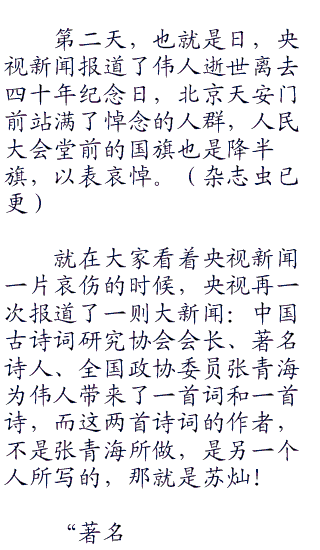 第二天，也就是日，央
视新闻报道了伟人逝世离去
四十年纪念日，北京天安门
前站满了悼念的人群，人民
大会堂前的国旗也是降半
旗，以表哀悼。（杂志虫已
更）
就在大家看着央视新闻
一片哀伤的时候，央视再一
次报道了一则大新闻：中国
古诗词研究协会会长、著名
诗人、全国政协委员张青海
为伟人带来了一首词和一首
诗，而这两首诗词的作者，
不是张青海所做，是另一个
人所写的，那就是苏灿！
“著名